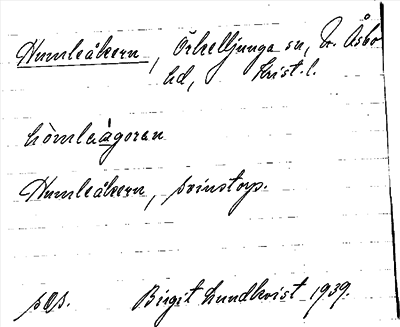 Humleåkern, Örkelljunga sn, N. Åsbo
hd, Krist. l.
hòmleàgoran
Humleåkern, svinstorp.
Birgit Lundkvist 1939.